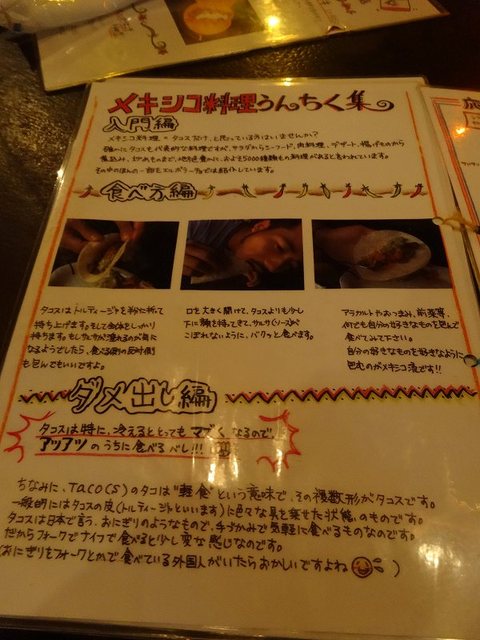 メキシコ料理うんちく集
入門編
メキシコ料理=タコスだけ、と思っている方はいませんか?
確かにタコスも代表的な料理ですが、サラダからシーフード、肉料理、デザート、揚げものから
煮込み、炒めものまで、地域食みに、およそ5000種類もの料理があると言われています。
その中のほんの一部をエルボラーチョでは紹介しています。
食べ方編
タコスはトルティージャを半分に折って
持ち上げます。そして全体をしっかり
持ちます。もしサルサが溢れるのが気に
なるようでしたら、食べる側の反対側
も包んでもいいですよ。
口を大きく開けて、タコスよりも少し
下に顔を持ってきて、サルサ(ソース)が
こぼれないように、パクッと食べます。
アラカルトやおつまみ、前菜等、
何でも自分の好きなものを包んで
食べてみて下さい。
自分の好きなものを好きなように
包むのがメキシコ流です!!
ダメ出し編
タコスは特に、冷えるととってもマズくなるので、
アツアツのうちに食べるべし!!!
ちなみに、taco(s)のタコは"軽食"という意味で、その複数形がタコスです。
一般的にはタコスの皮(トルティージャといいます)に色々な具を乗せた状態のものです。
タコスは日本で言う、おにぎりのようなもので、手づかみで気軽に食べるものなのです。
だからフォークでナイフで食べると少し変な感じなのです。
(おにぎりをフォークとかで食べている外国人がいたらおかしいですよね)